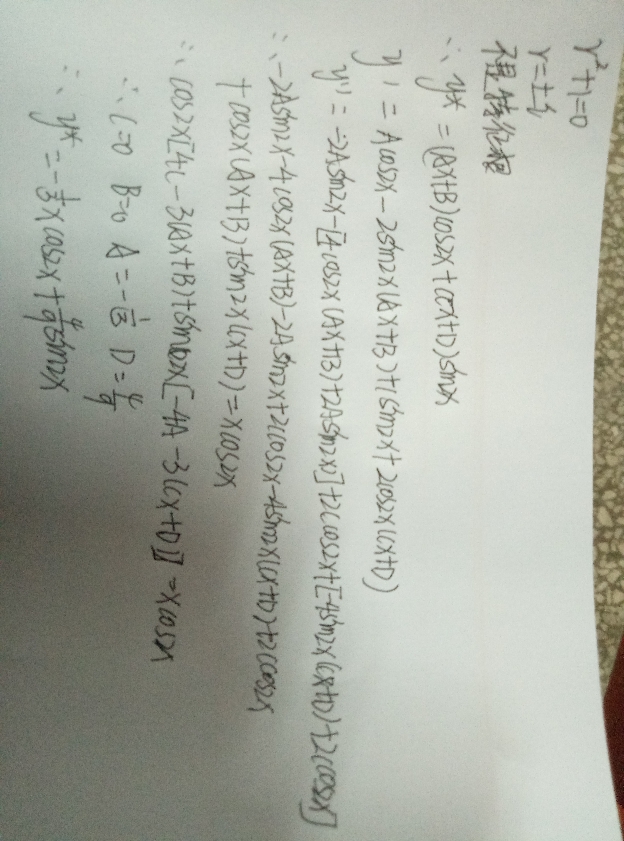 r²+1=0
r=±i
不是特征根
∴ y* = (Ax+B)cos2x+(Cx+D)sin2x
y' = Acos2x-2sin2x(Ax+B)+Csin2x+2cos2x(Cx+D)
y'' = -2Asin2x-[4cos2x(Ax+B)+2Asin2x]+2Ccos2x+[-4sin2x(Cx+D)+2Ccos2x]
∴ -2Asin2x-4cos2x(Ax+B)-2Asin2x+2Ccos2x-4sin2x(Cx+D)+2Ccos2x
+cos2x(Ax+B)+sin2x(Cx+D)=xcos2x
∴ cos2x[4C-3(Ax+B)]+sin2x[-4A-3(Cx+D)]=xcos2x
∴ C=0 B=0 A=-1/3 D=4/9
∴ y* = -1/3xcos2x+4/9sin2x